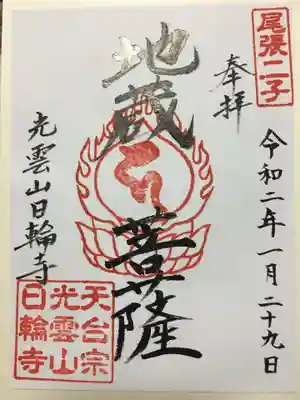 尾張二子
奉拝
令和二年一月二十九日
地蔵菩薩
光雲山日輪寺
天台宗
光雲山
日輪寺